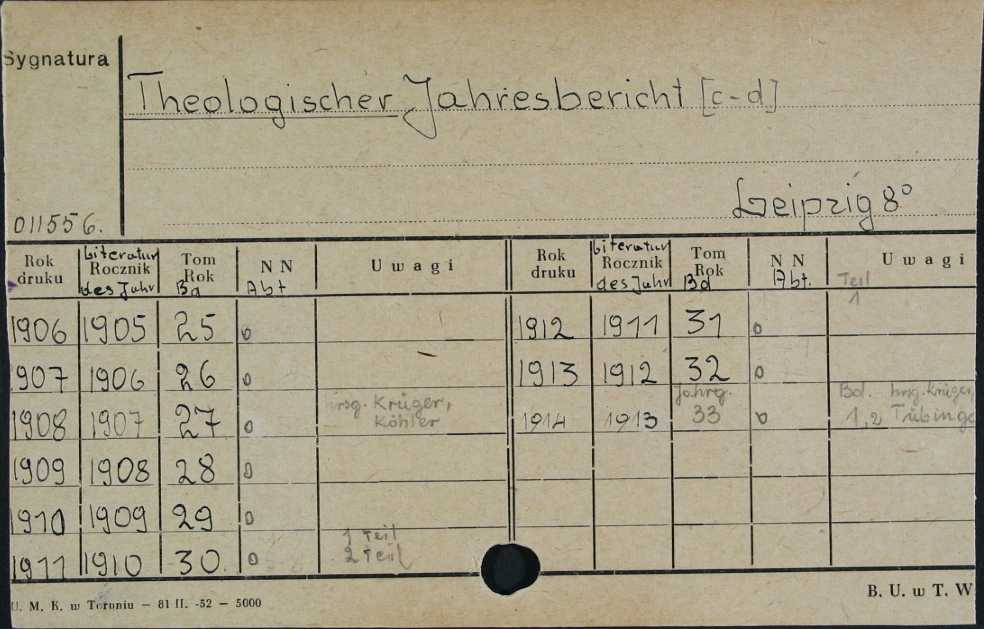 Sygnatura
Theologischer Jahresbericht [c-d]
Leipzig 8°
011556.
Rok druku | Literatur Rocznik des Jahr | Tom Rok Bd | NN Abt | Uwagi | Rok druku | Literatur Rocznik des Jahr | Tom Rok Bd | NN Abt. | Uwagi Teil 1
1906 | 1905 | 25 | 0 | | 1912 | 1911 | 31 | 0
1907 | 1906 | 26 | 0 | | 1913 | 1912 | 32 | 0
1908 | 1907 | 27 | 0 | hrsg. Krüger, Köhler | 1914 | 1913 | Jahrg. 33 | 0 | Bd. hrsg. Krüger, 1,2 Tübinge
1909 | 1908 | 28 | 0
1910 | 1909 | 29 | 0
1911 | 1910 | 30. | 0 | 1 Teil 2 Teil
U. M. K. w Toruniu — 81 II. -52 — 5000
B. U. w T. W